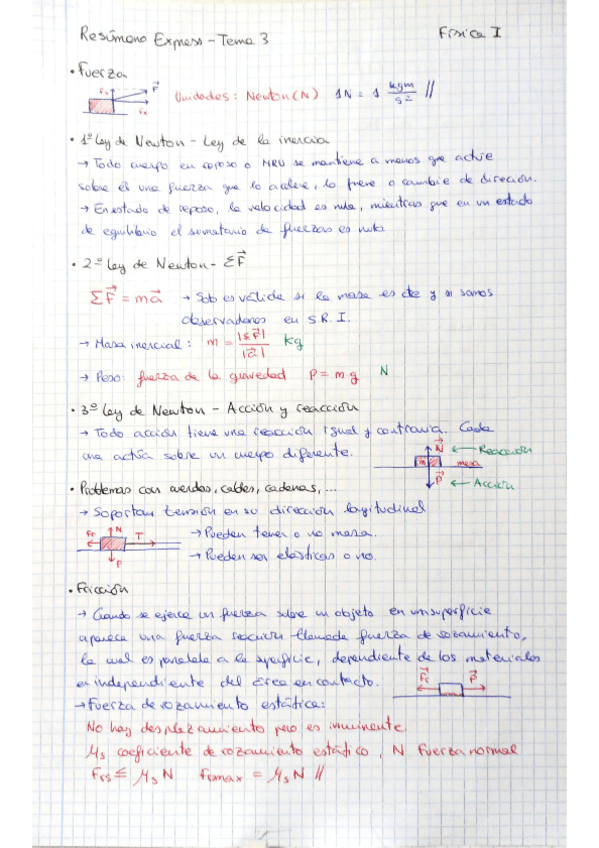 Resúmeno Express - Tema 3 Física I
• Fuerza
Fy F⃗ Fx Unidades: Newton (N) 1N = 1 kgm/s² //
• 1º Ley de Newton - Ley de la inercia
→ Todo cuerpo en reposo o MRU se mantiene a menos que actúe
sobre él una fuerza que lo acelere, lo frene o cambie de dirección.
→ En estado de reposo, la velocidad es nula, mientras que en un estado
de equilibrio el sumatorio de fuerzas es nula
• 2º Ley de Newton - ΣF⃗
ΣF⃗ = ma⃗ → Solo es válida si la masa es cte y si somos
observadores en S.R.I.
→ Masa inercial: m = |ΣF⃗| / |a⃗| kg
→ Peso: fuerza de la gravedad P = mg N
• 3º Ley de Newton - Acción y reacción
→ Todo acción tiene una reacción igual y contraria. Cada
una actúa sobre un cuerpo diferente.
N⃗ ← Reacción
m mesa
P⃗ ← Acción
• Problemas con cuerdas, cables, cadenas, ...
→ Soportan tensión en su dirección longitudinal
Fr N T P
→ Pueden tener o no masa.
→ Pueden ser elásticas o no.
• Fricción
→ Cuando se ejerce un fuerza sobre un objeto en un superficie
aparece una fuerza reacción llamada fuerza de rozamiento,
la cual es paralela a la superficie, dependiente de los materiales
e independiente del área en contacto.
Fr⃗ P⃗
→ Fuerza de rozamiento estática:
No hay desplazamiento pero es inminente.
μs coeficiente de rozamiento estático, N fuerza normal
Frs ≤ μs N Frsmax = μs N //